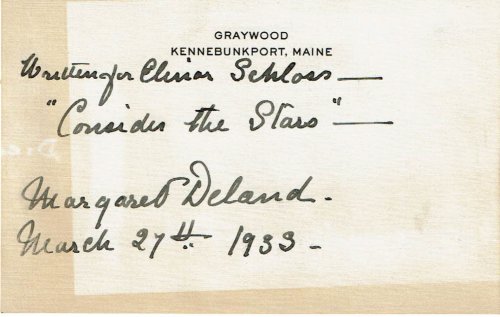 GRAYWOOD
KENNEBUNKPORT, MAINE
Written for Elinor Schloss —
"Consider the Stars" —
Margaret Deland.
March 27th 1933 -